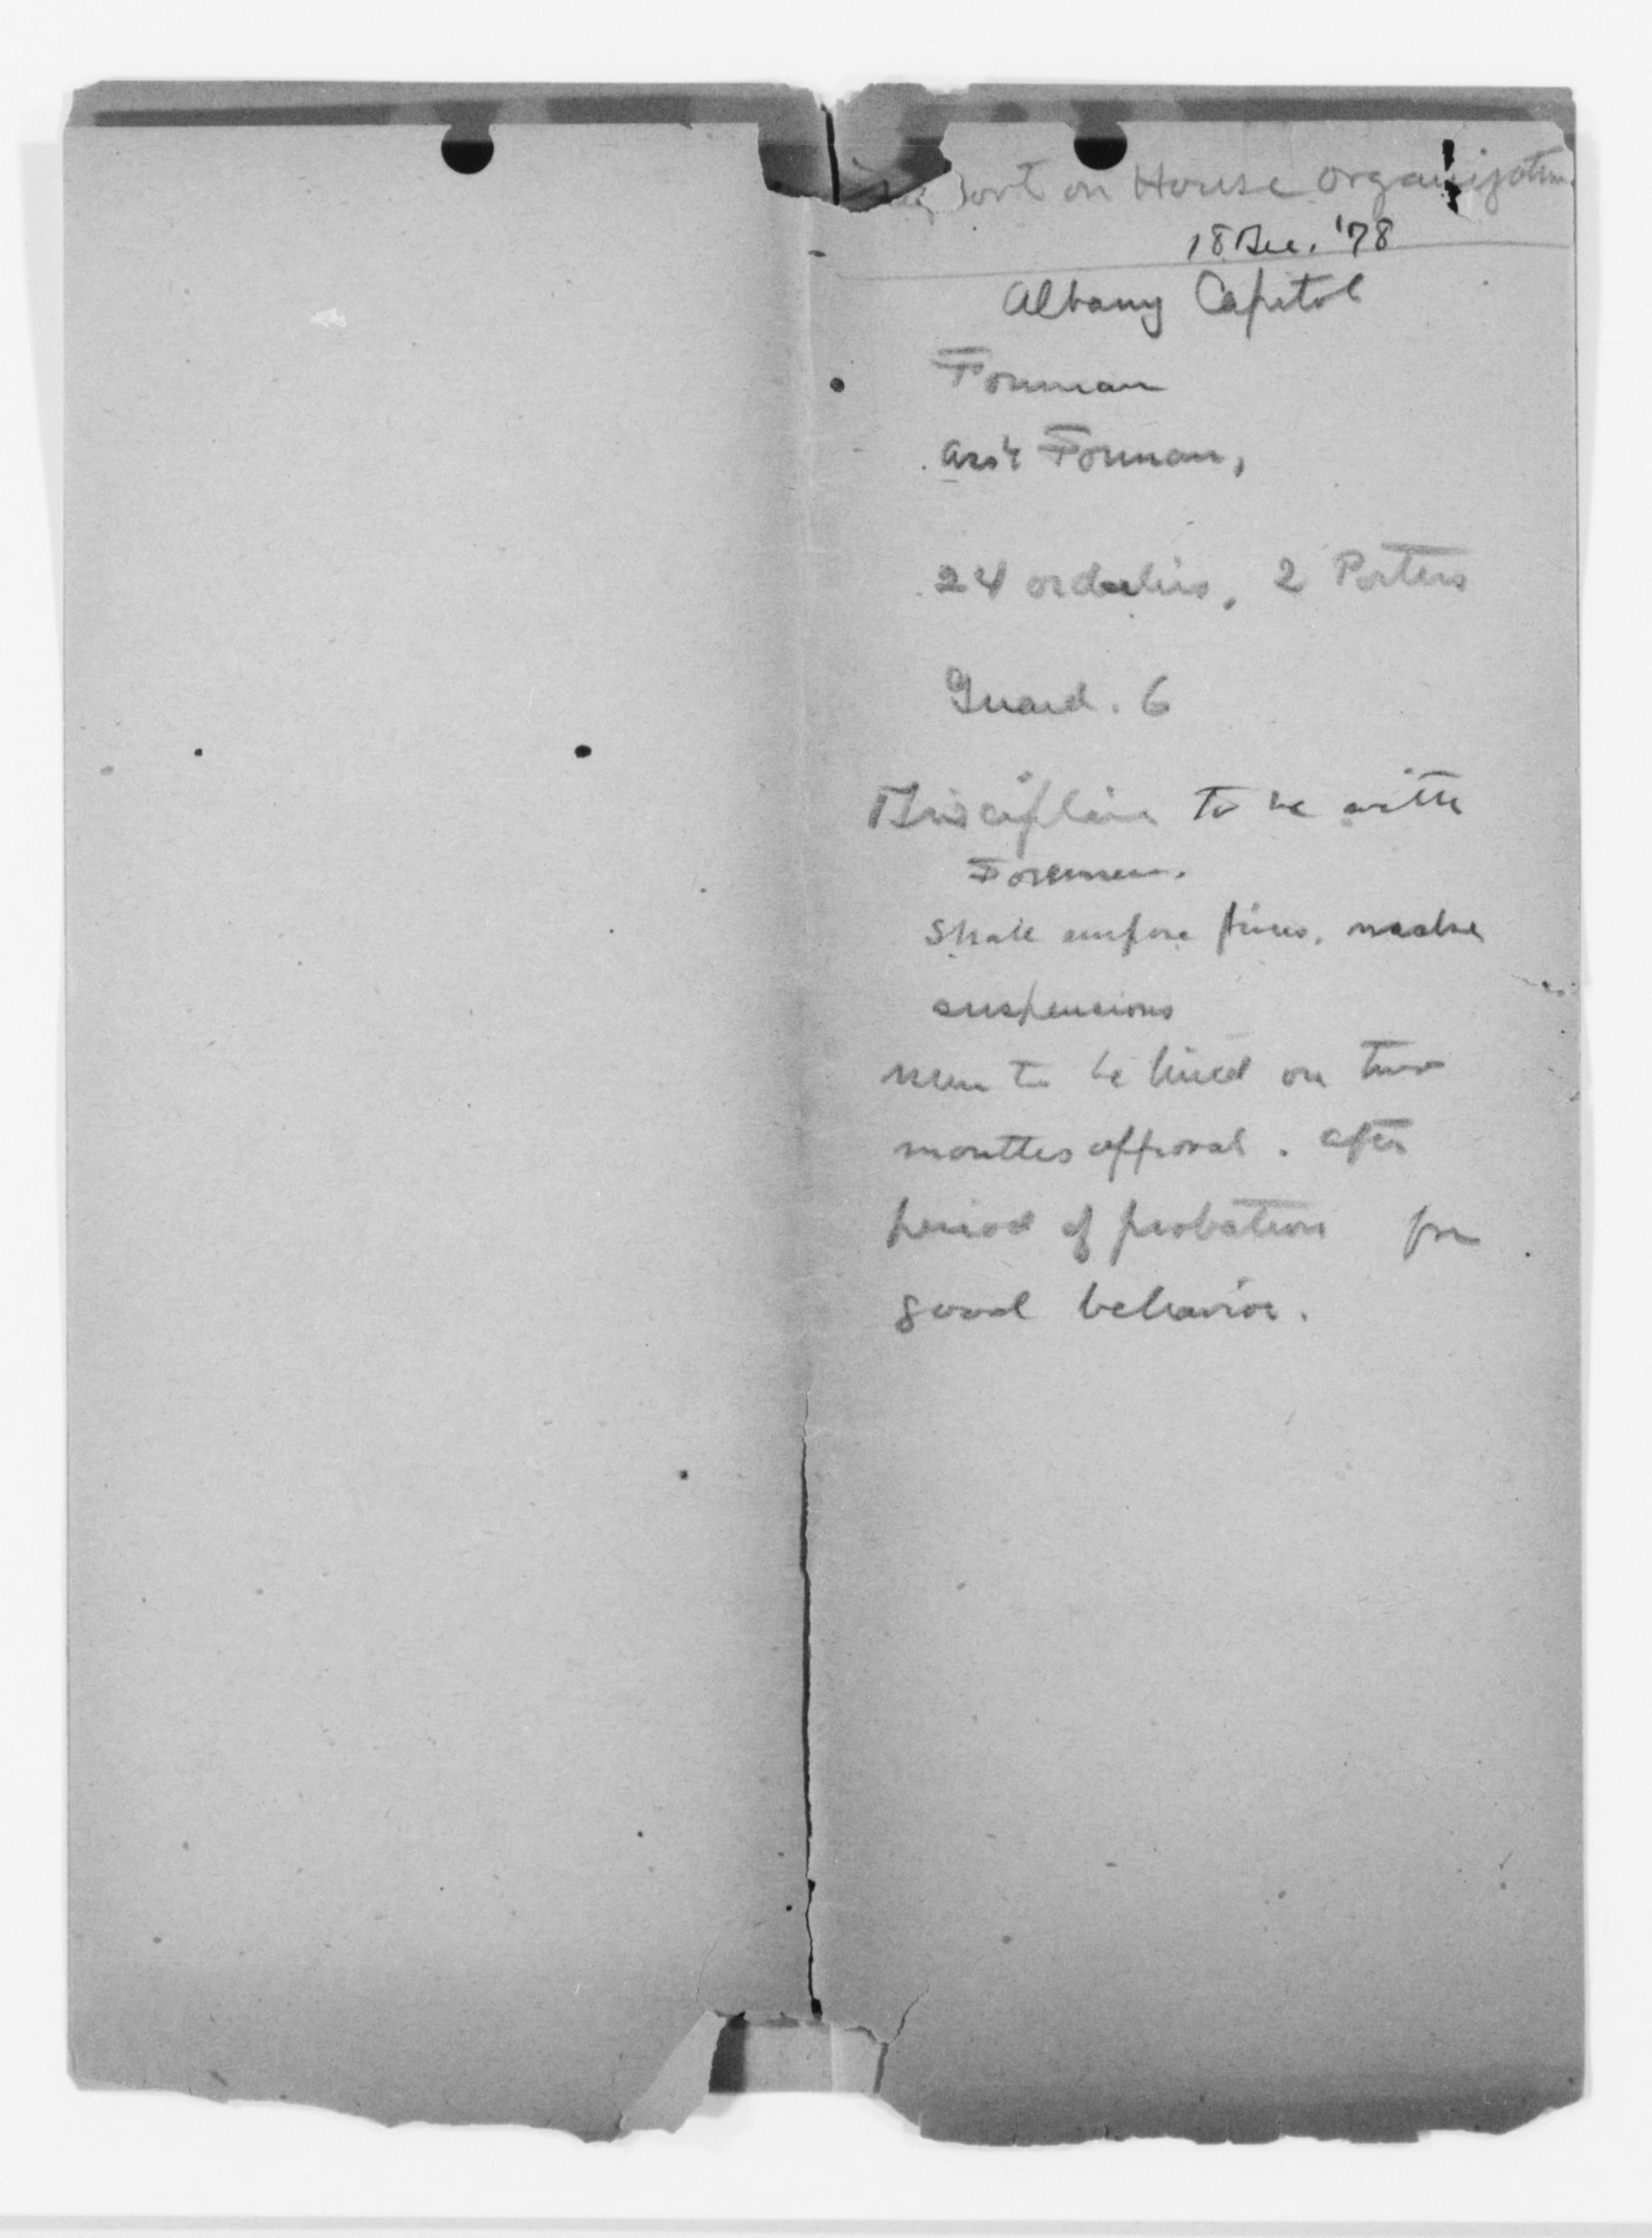 Report on House Organization
18 Dec. '78
Albany Capitol
Forman
Ass't Forman,
24 orderlies, 2 Porters
Guard. 6
Discipline to be with
Foremen.
Shall enforce fines, make
suspensions
men to be hired on two
months approval. after
period of probation for
good behavior.